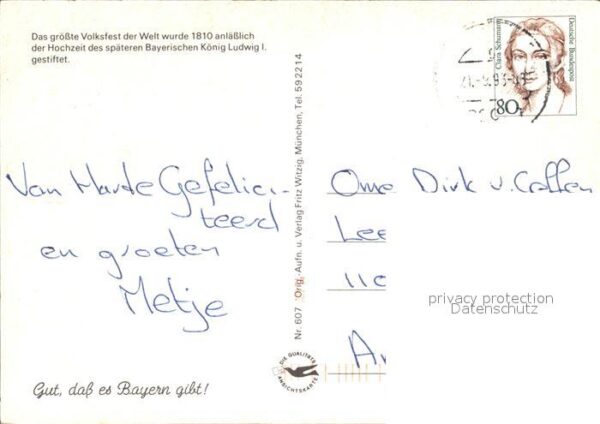 Das größte Volksfest der Welt wurde 1810 anläßlich
der Hochzeit des späteren Bayerischen König Ludwig I.
gestiftet.
Van Harte Gefelici-
teerd
en groeten
Metje
Gut, daß es Bayern gibt!
Nr. 607 Orig.-Aufn. u. Verlag Fritz Witzig, München, Tel. 592214
DIE QUALITÄTS
ANSICHTSKARTE
Clara Schumann
Deutsche Bundespost
80
Ome Dirk v. Calfen
Lee
110
A
privacy protection
Datenschutz